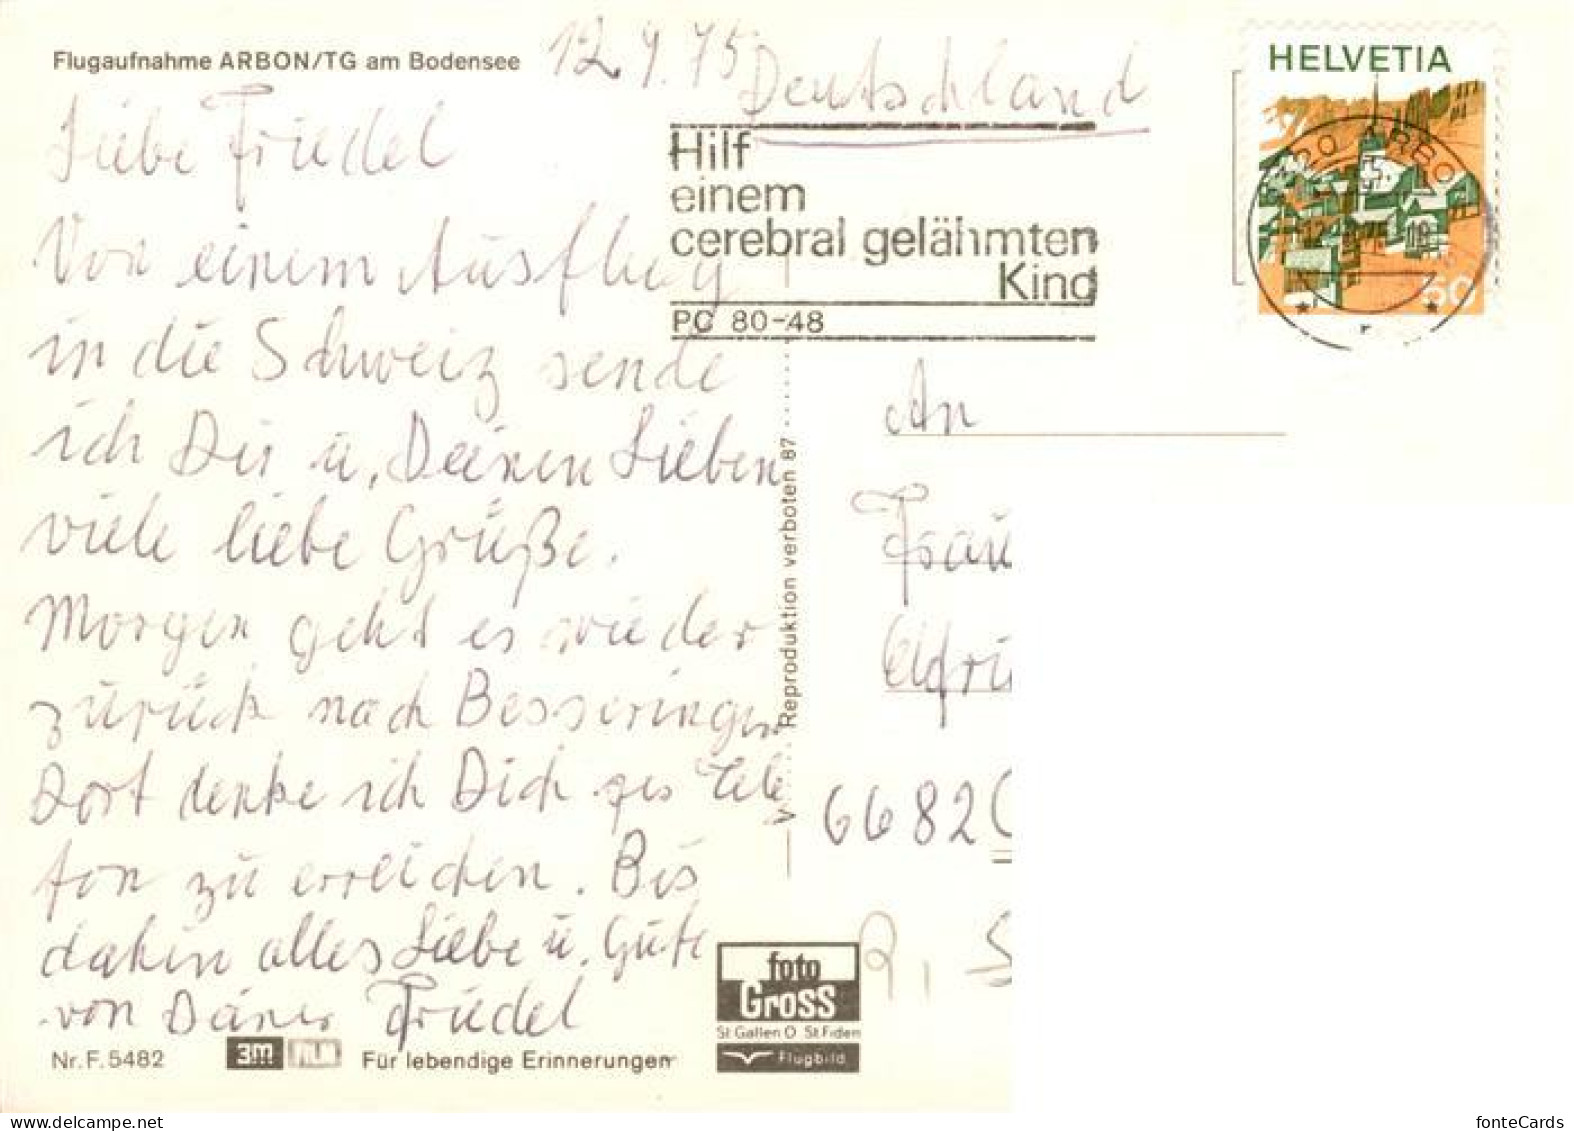 Flugaufnahme ARBON/TG am Bodensee
12.9.75
Deutschland
HELVETIA
50
ARBO
Hilf
einem
cerebral gelähmten
Kind
PC 80-48
Liebe Friedel
Von einem Ausflug
in die Schweiz sende
ich Dir u. Deinen Lieben
viele liebe Grüße.
Morgen geht es wieder
zurück nach Besseringen
Dort denke ich Dich per Tele
fon zu erreichen. Bis
dahin alles Liebe u. Gute
von Deiner Friedel
An
Frau
Elfri
6682
Reproduktion verboten 87
foto
Gross
St Gallen O St Fiden
Flugbild
Nr. F. 5482
3m
Für lebendige Erinnerungen
fonteCards